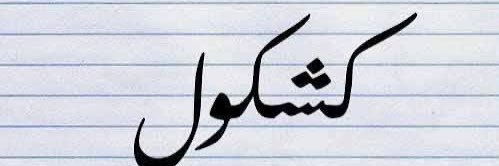 کشکول